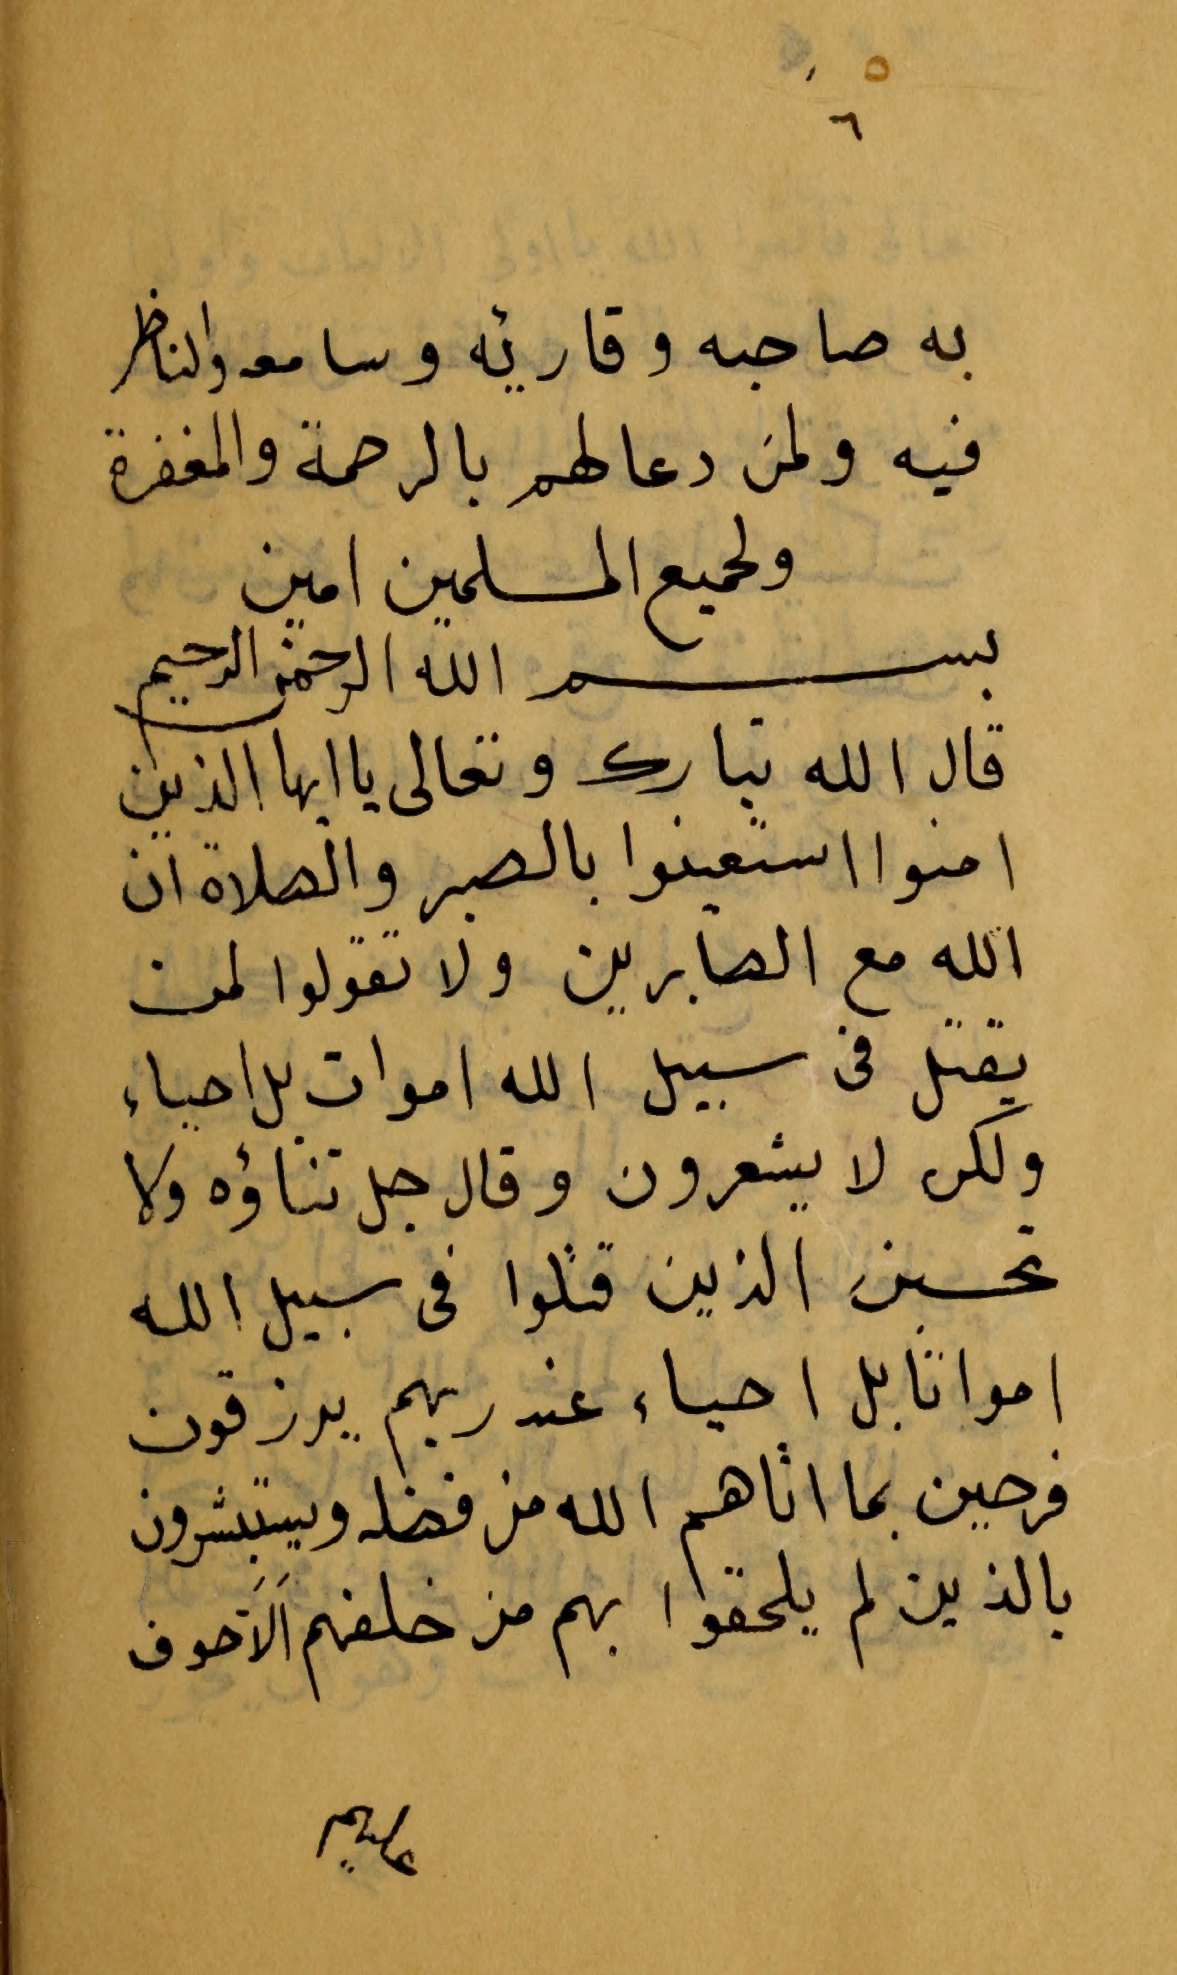 ٥
٦
به صاحبه وقاريه وسامعه والناظر
فيه ولمن دعا لهم بالرحمة والمغفرة
ولجميع المسلمين امين
بسم الله الرحمن الرحيم
قال الله تبارك وتعالى يا ايها الذين
امنوا استعينوا بالصبر والصلاة ان
الله مع الصابرين ولا تقولوا لمن
يقتل فى سبيل الله اموات بل احياء
ولكن لا يشعرون وقال جل ثناؤه ولا
تحسبن الذين قتلوا فى سبيل الله
امواتا بل احياء عند ربهم يرزقون
فرحين بما اتاهم الله من فضله ويستبشرون
بالذين لم يلحقوا بهم من خلفهم اَلَّا خوف
عليهم